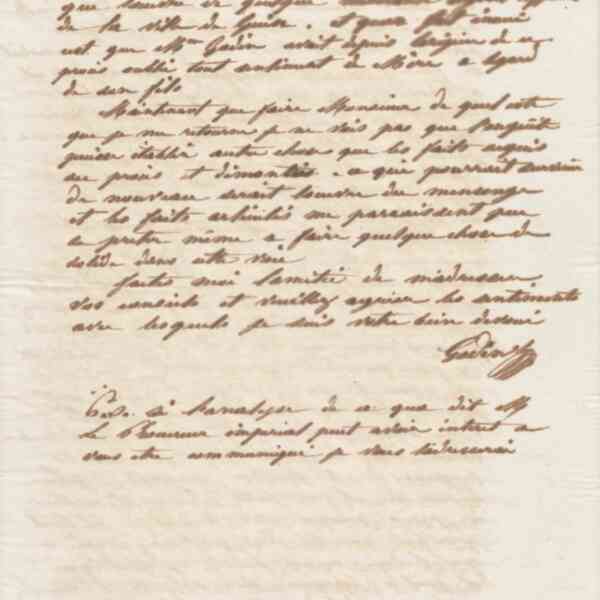 que l'œuvre de quelque
de la ville de Guise. et
est que Mme Godin avait depuis l'origine de ce
procès oublié tout sentiment de Mère a égard
de son fils
Maintenant que faire Monsieur de quel coté
que je me retourne je ne vois pas que l'enquête
puisse établir autre chose que les faits acquis
au procès et démontrés. ce que pourrait
de nouveau serait l'œuvre du mensonge
et les faits articulés me paraissent peu
se prêter même a faire quelque chose de
solide dans cette voie
faites moi l'amitié de m'adresser
vos conseils et veuillez agréer les sentiments
avec lesquels je suis votre bien dévoué
Godin
P.S. Si l'analyse de ce que dit M
Le Procureur impérial peut avoir intérêt a
vous etre communiqué je vous l'adresserai